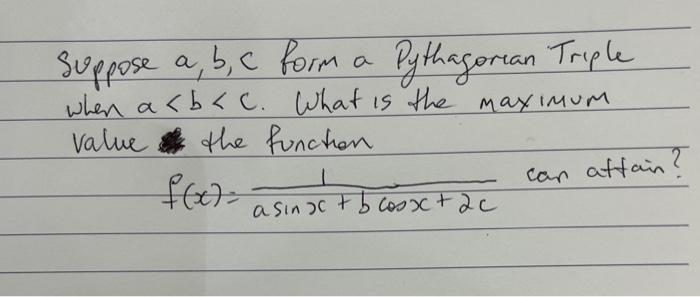 Suppose a, b, c form a Pythagorian Triple
when a < b < c. What is the maximum
value the function
f(x) = 1 / (a sin x + b cos x + 2c) can attain?